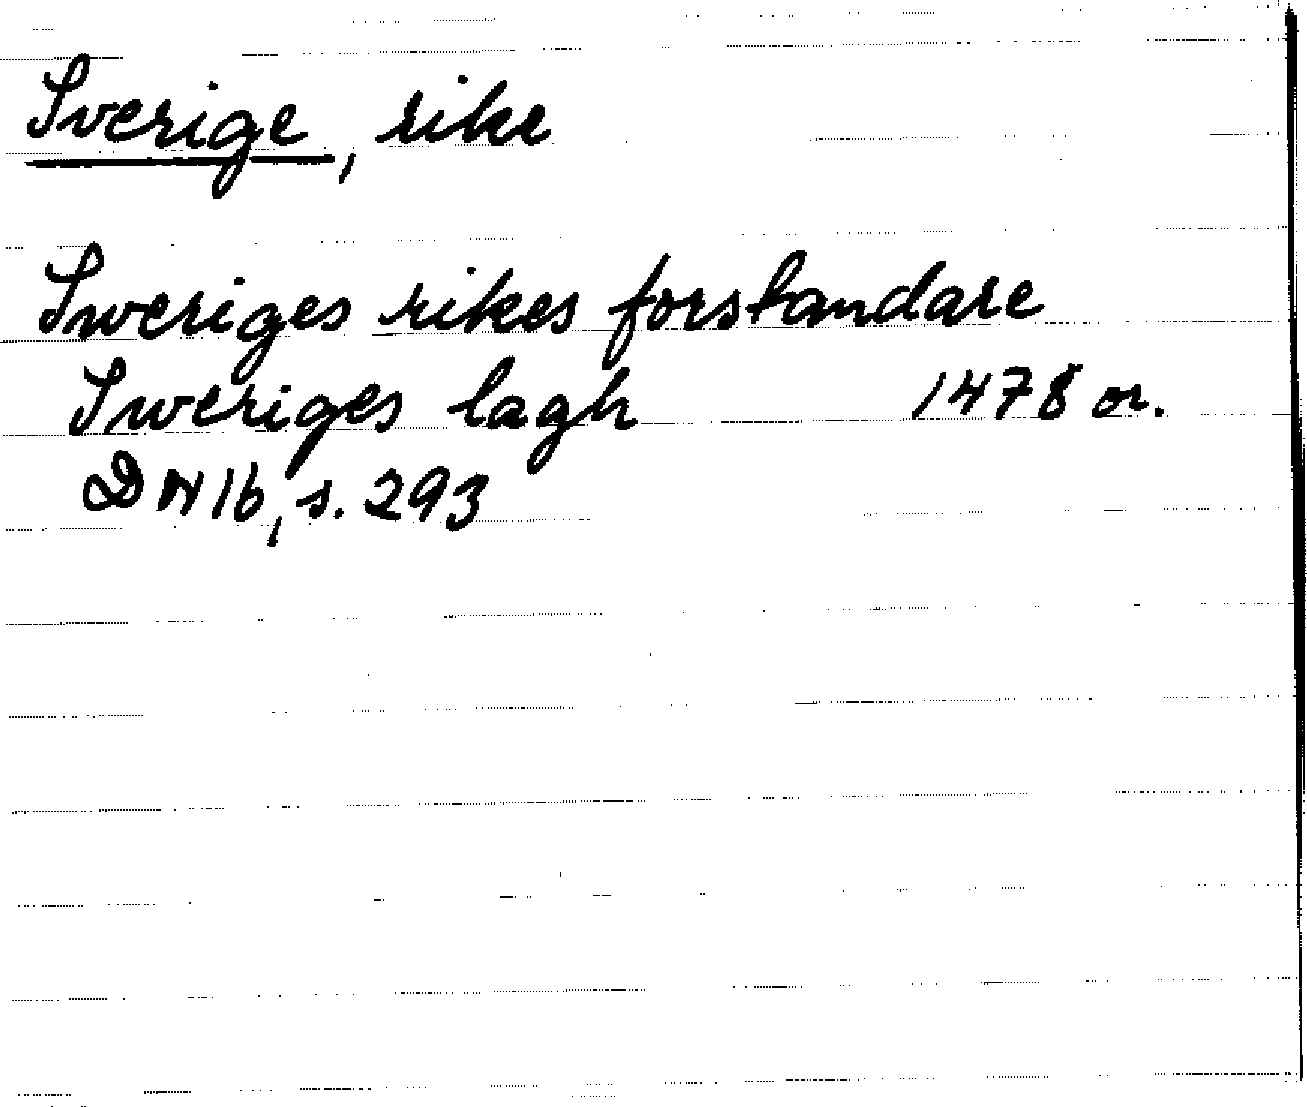 Sverige, rike
Sweriges rikes forstandare
Sweriges lagh 1478 or.
DN 16, s. 293